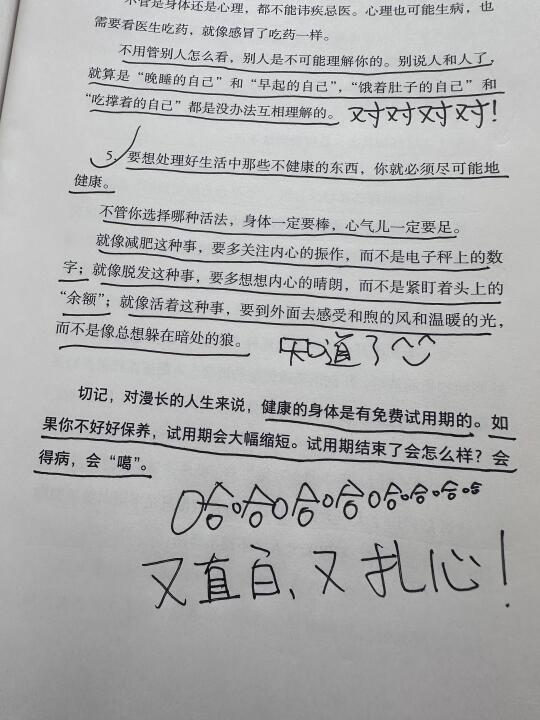 不管是身体还是心理，都不能讳疾忌医。心理也可能生病，也
需要看医生吃药，就像感冒了吃药一样。
不用管别人怎么看，别人是不可能理解你的。别说人和人了，
就算是“晚睡的自己”和“早起的自己”，“饿着肚子的自己”和
“吃撑着的自己”都是没办法互相理解的。 对对对对！
5. 要想处理好生活中那些不健康的东西，你就必须尽可能地
健康。
不管你选择哪种活法，身体一定要棒，心气儿一定要足。
就像减肥这种事，要多关注内心的振作，而不是电子秤上的数
字；就像脱发这种事，要多想想内心的晴朗，而不是紧盯着头上的
“余额”；就像活着这种事，要到外面去感受和煦的风和温暖的光，
而不是像总想躲在暗处的狼。 知道了^^
切记，对漫长的人生来说，健康的身体是有免费试用期的。如
果你不好好保养，试用期会大幅缩短。试用期结束了会怎么样？会
得病，会“噶”。
哈哈哈哈哈哈哈哈
又直白、又扎心！